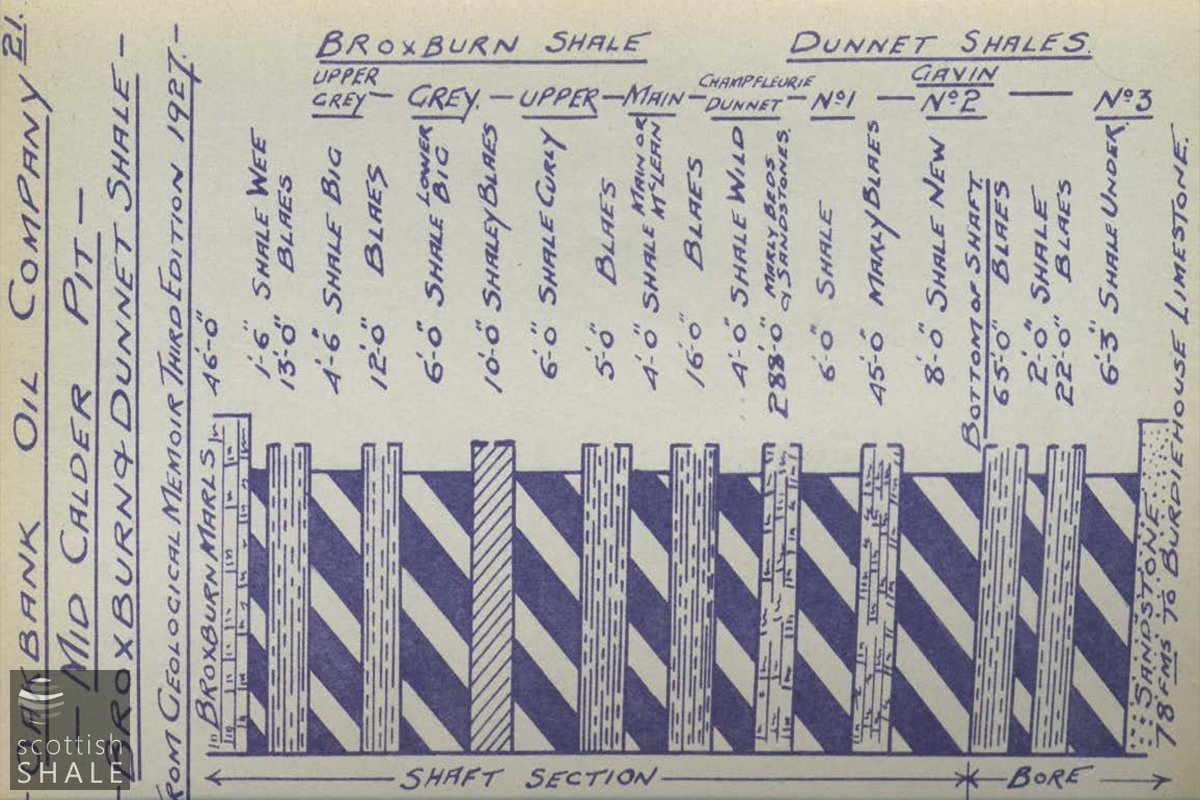 OAKBANK OIL COMPANY 21.
— MID CALDER PIT —
— BROXBURN & DUNNET SHALE —
FROM GEOLOGICAL MEMOIR THIRD EDITION 1927. —
BROXBURN SHALE
DUNNET SHALES.
UPPER GREY — GREY. — UPPER — MAIN — CHAMPFLEURIE DUNNET — Nº1 — GAVIN Nº2 — Nº3
46'-0"
1'-6" SHALE WEE
13'-0" BLAES
4'-6" SHALE BIG
12'-0" BLAES
6'-0" SHALE LOWER BIG
10'-0" SHALEY BLAES
6'-0" SHALE CURLY
5'-0" BLAES
4'-0" SHALE MAIN OR McLEAN
16'-0" BLAES
4'-0" SHALE WILD
288'-0" MARLY BEDS & SANDSTONES.
6'-0" SHALE
45'-0" MARLY BLAES
8'-0" SHALE NEW
BOTTOM OF SHAFT.
65'-0" BLAES
2'-0" SHALE
22'-0" BLAES
6'-3" SHALE UNDER.
BROXBURN MARLS
SANDSTONE.
78 FMS TO BURDIEHOUSE LIMESTONE.
SHAFT SECTION
BORE
scottish
SHALE